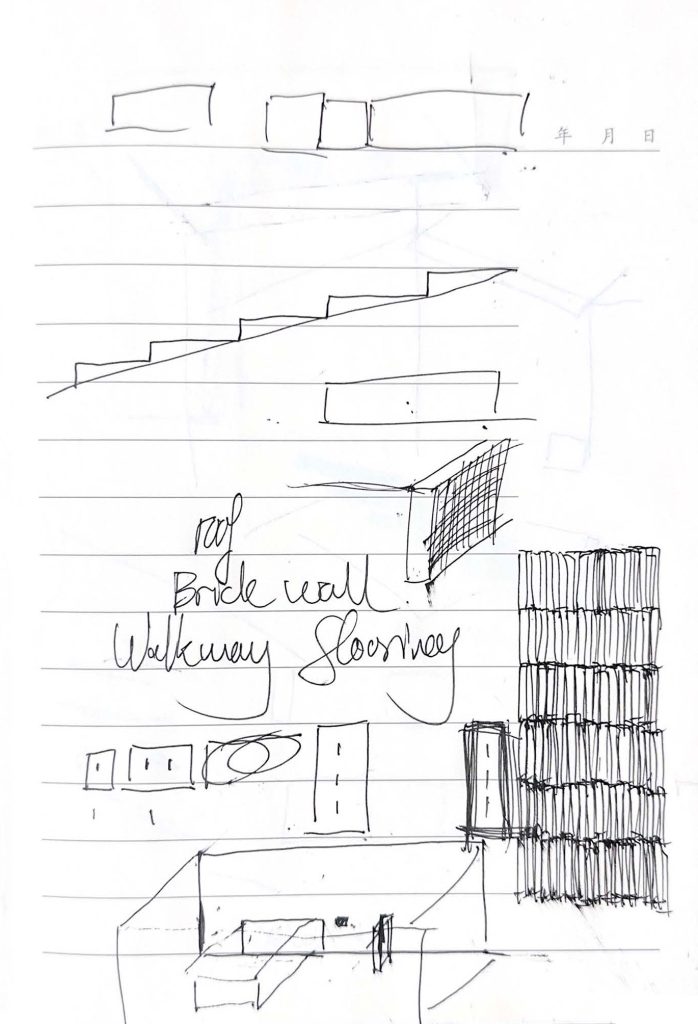 年 月 日
roof
Brick wall
Walkway flooring